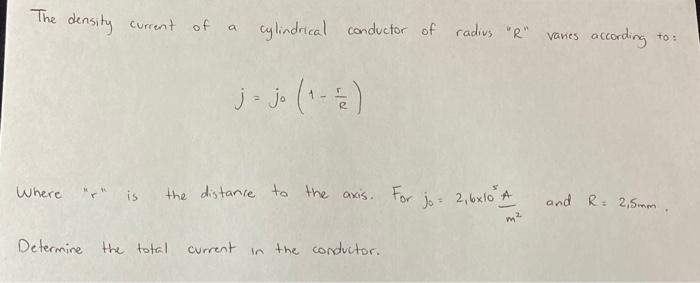 The density current of a cylindrical conductor of radius "R" varies according to:
j = j₀ (1 - r/R)
Where "r" is the distance to the axis. For j₀ = 2,6x10⁵ A/m² and R = 2,5mm.
Determine the total current in the conductor.